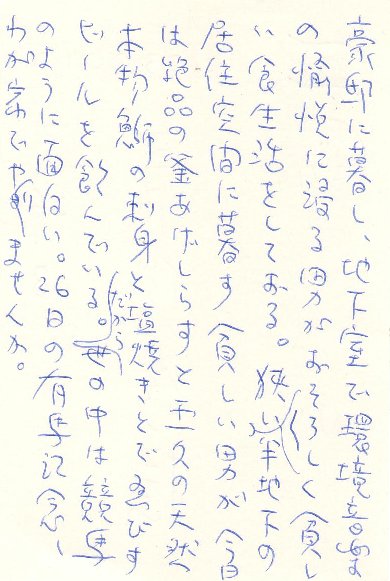 豪邸に暮し、地下室で環境音楽
の愉悦に浸る男がおそろしく貧し
い食生活をしておる。狭い半地下の
居住空間に暮す貧しい男が今日
は絶品の釜あげしらすと の天然
本物鰤の刺身と塩焼きとでゑびす
ビールを飲んでいる。だから世の中は競馬
のように面白い。26日の有馬記念、
わが家でやりませんか。